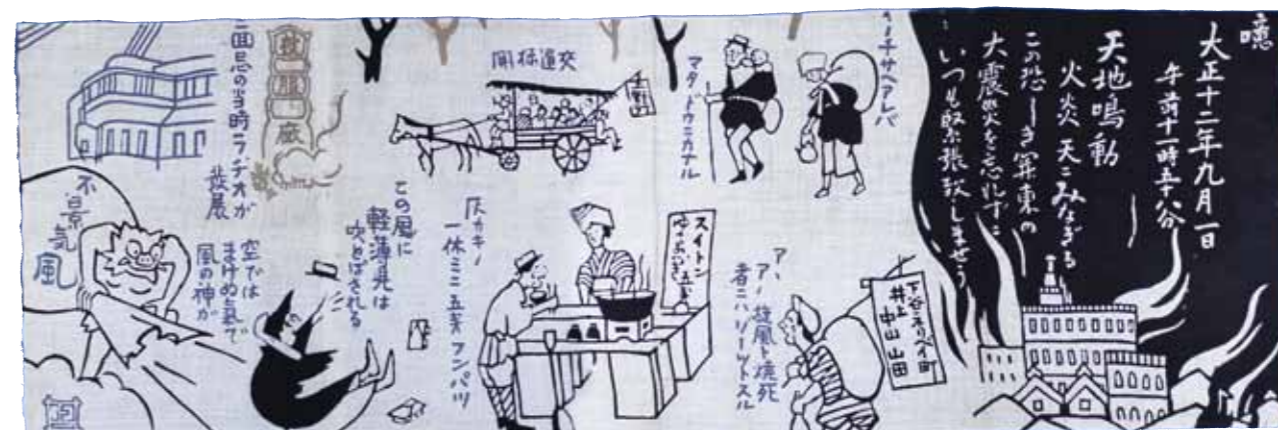 噫
大正十二年九月一日
午前十一時五十八分
天地鳴動
火炎天ニみなぎる
この恐しき関東の
大震災を忘れずに
いつも緊張致しませう
チサヘアレバ
マタドウニカナル
下谷ネリベイ町
井上
中山 山田
旋風ト焼死
者ニハゾーットスル
スイトン
カキノ
一休ミニ フンパツ
この風に
軽薄児は
吹とばされる
被服廠
回忌の当時ラヂオが
発展
空では
まけぬ気で
風の神が
不景気風